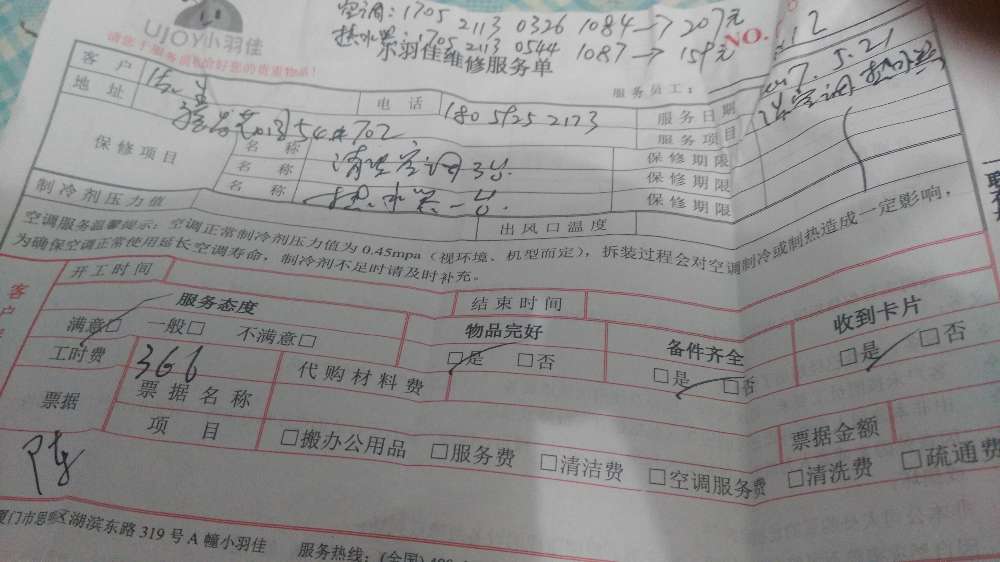 空调:1705 2113 0326 1084→207元
热水器:1705 2113 0544 1087→159元
UJOY小羽佳
小羽佳维修服务单
NO.
服务员工:
客户
电话
180 5925 2173
服务日期
5.21
地址
54# 702
服务项目
洗空调 热水器
保修项目
名称
清洗空调3台
保修期限
名称
热水器一台
保修期限
名称
保修期限
制冷剂压力值
出风口温度
空调服务温馨提示:空调正常制冷剂压力值为0.45mpa(视环境、机型而定),拆装过程会对空调制冷或制热造成一定影响,
为确保空调正常使用延长空调寿命,制冷剂不足时请及时补充。
开工时间
结束时间
服务态度
物品完好
备件齐全
收到卡片
满意□ 一般□ 不满意□
□是 □否
□是 □否
□是 □否
工时费
366
代购材料费
票据
票据名称
票据金额
项目
□搬办公用品 □服务费 □清洁费 □空调服务费 □清洗费 □疏通费
厦门市思明区湖滨东路319号A幢小羽佳 服务热线:(全国)